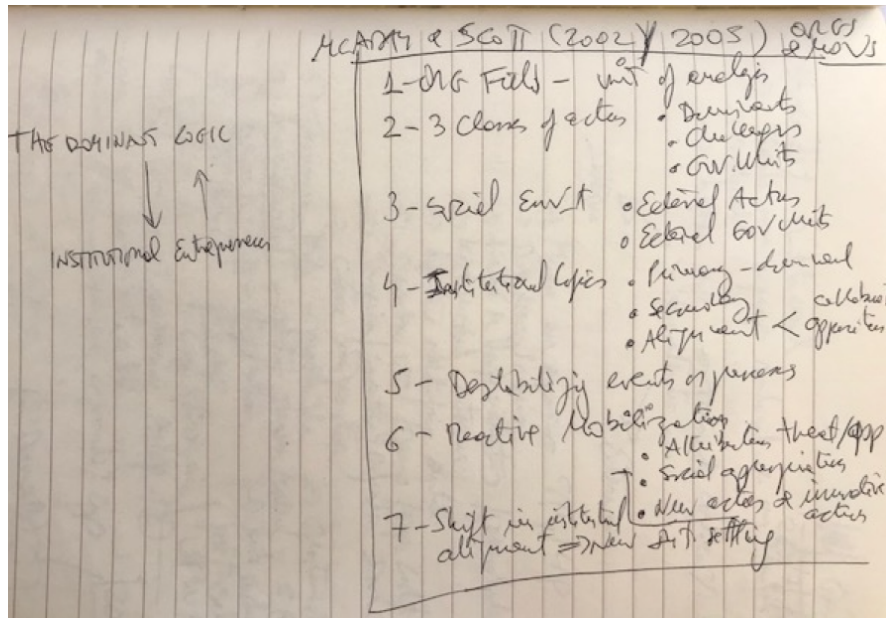 MCADAM & SCOTT (2002 / 2005) ORGS & MOVS
THE DOMINANT LOGIC
INSTITUTIONAL Entrepreneurs
1 - ORG Field - unit of analysis
2 - 3 Classes of actors • Dominants
• Challengers
• Gov. Units
3 - Social Envt • External Actors
• External Gov Units
4 - Institutional Logics • Primary - dominant
• Secondary
• Alignment <
5 - Destabilizing events or processes
6 - Reactive Mobilization
• Attribution threat/opp
• Social appropriation
• New actors & innovative action
7 - Shift in institutional
alignment => New settling